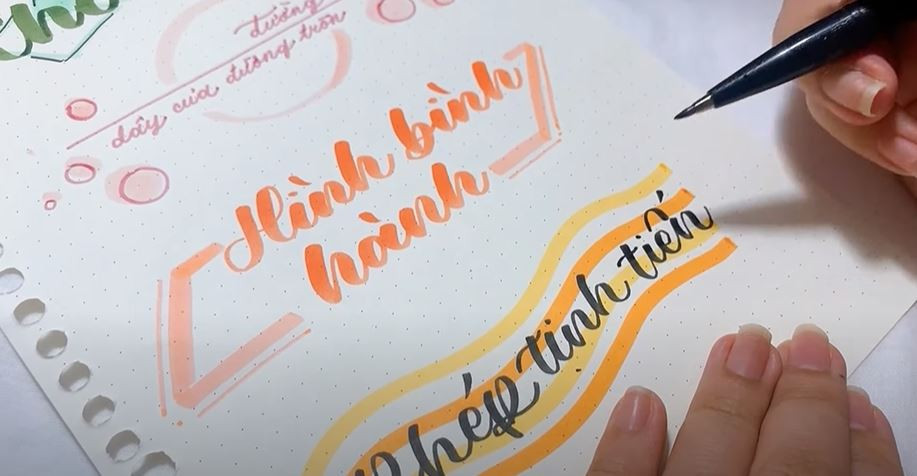 đường
dây của đường tròn
Hình bình
hành
Phép tịnh tiến